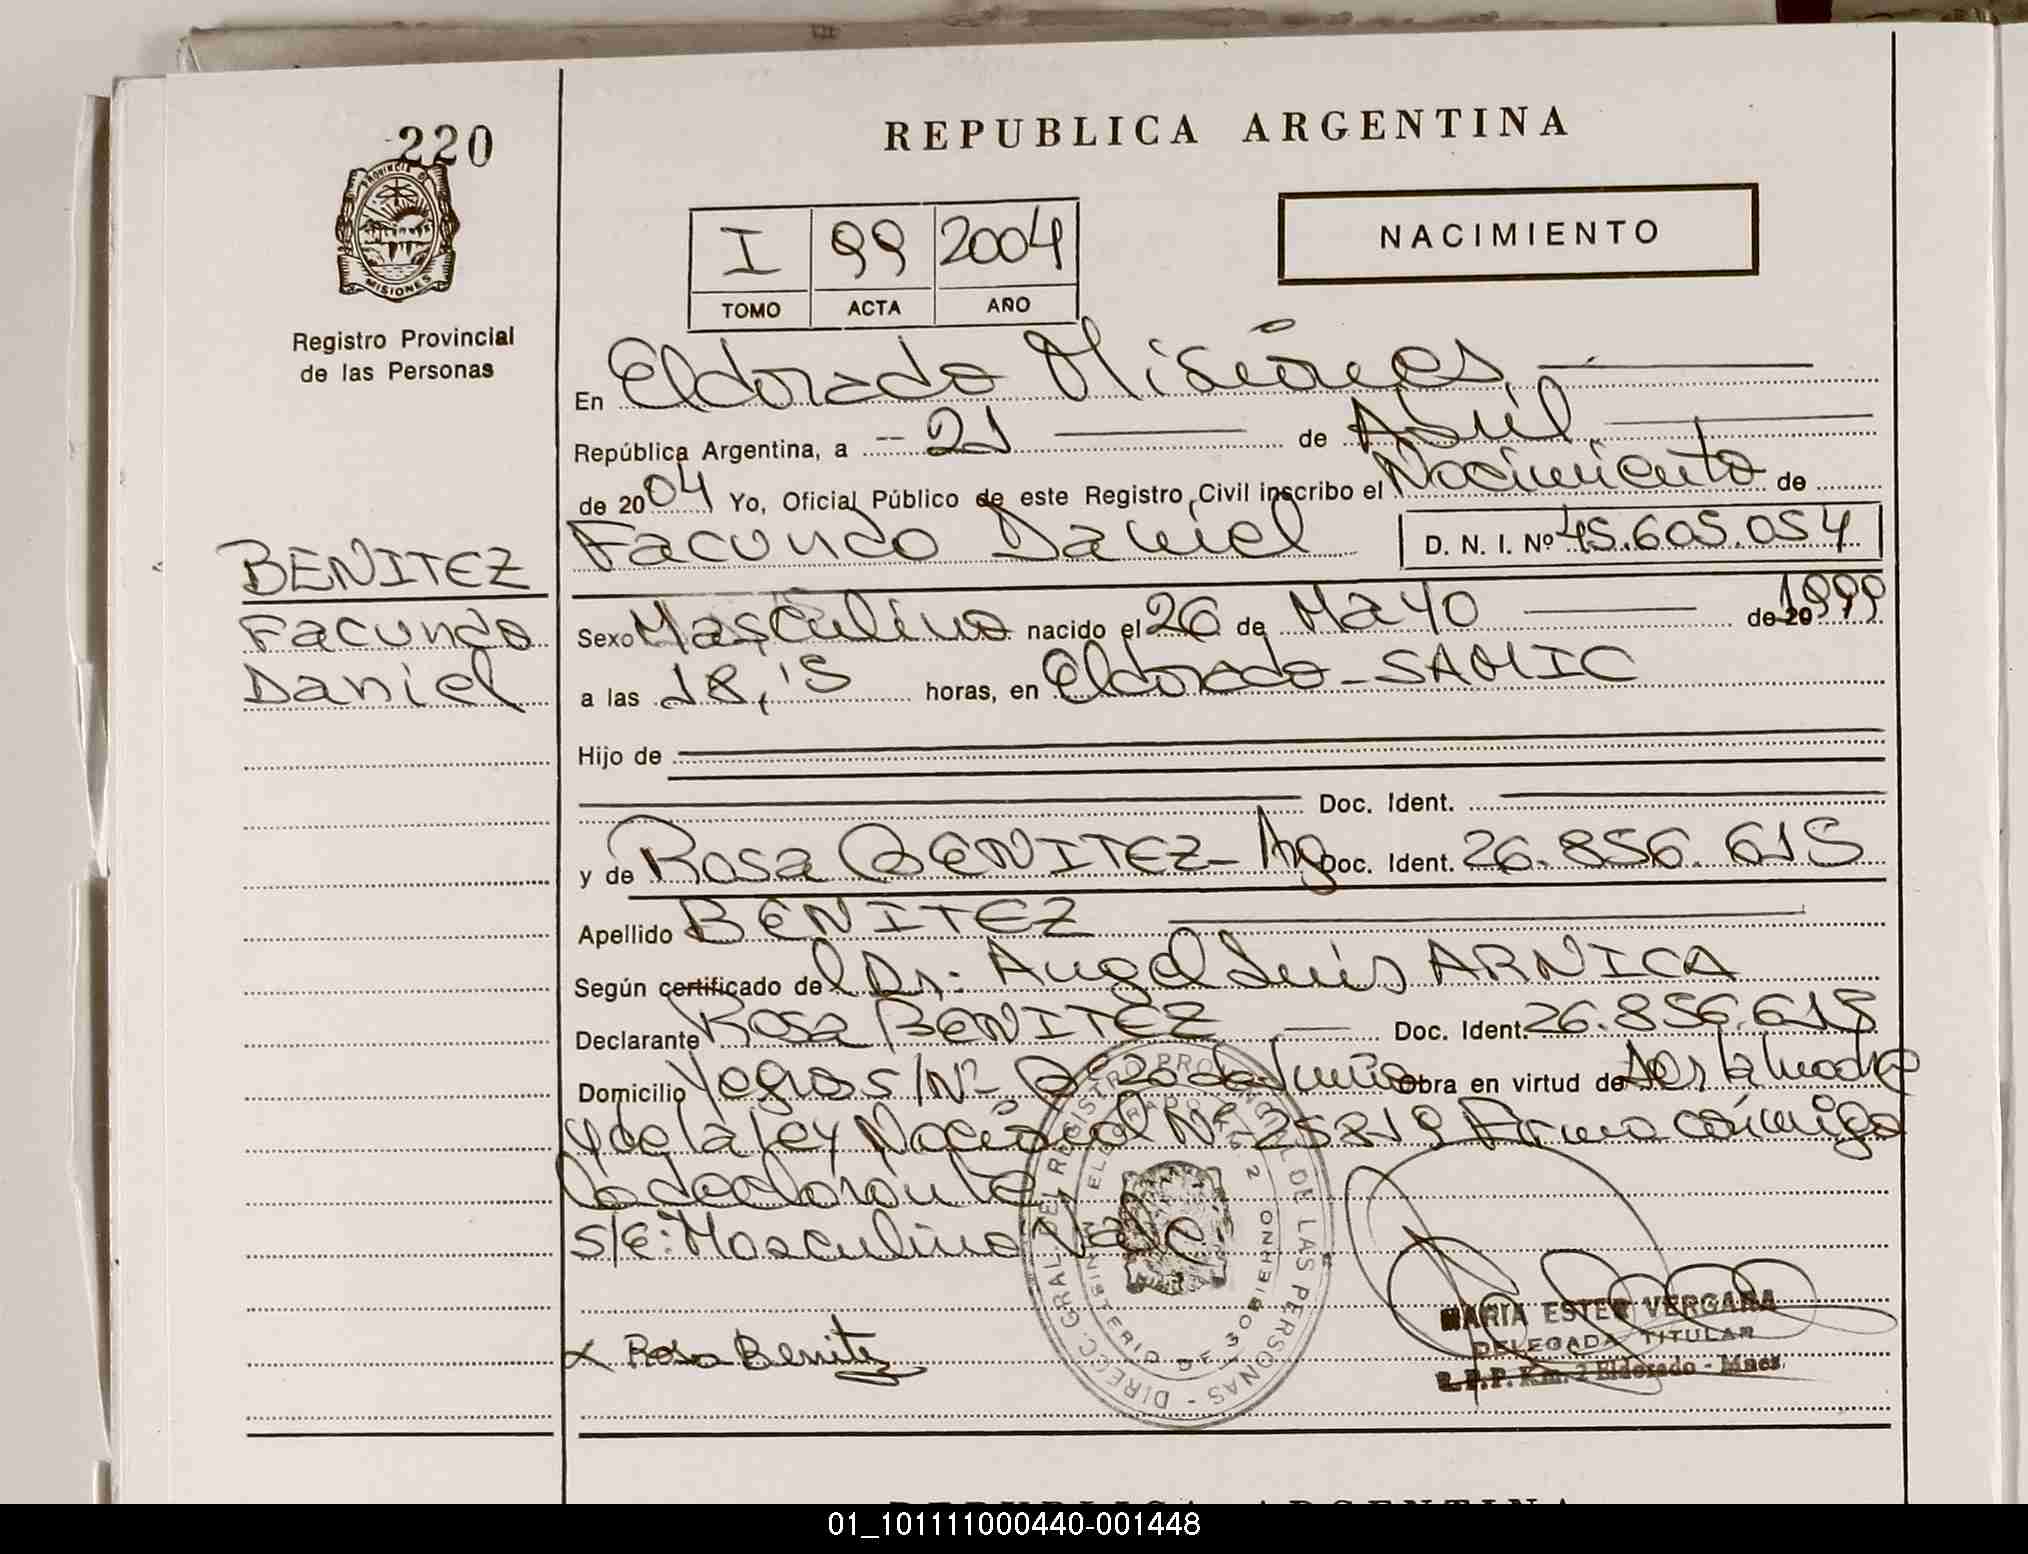 220
PROVINCIA DE
MISIONES
Registro Provincial
de las Personas
BENITEZ
Facundo
Daniel
REPUBLICA ARGENTINA
I 99 2004
TOMO ACTA AÑO
NACIMIENTO
En Eldorado Misiones
República Argentina, a -- 21 de Abril
de 2004 Yo, Oficial Público de este Registro Civil inscribo el Nacimiento de
Facundo Daniel D. N. I. Nº 45.605.054
Sexo Masculino nacido el 26 de MAYO de 20 1999
a las 18,15 horas, en Eldorado - SAMIC
Hijo de
Doc. Ident.
y de Rosa BENITEZ - Arg Doc. Ident. 26.856.615
Apellido BENITEZ
Según certificado del Dr. Angel Luis ARNICA
Declarante Rosa BENITEZ Doc. Ident. 26.856.615
Domicilio Yegros S/Nº Bº 20 de Junio Obra en virtud de ser la madre
y de la Ley Nacional Nº 25819 Firma conmigo
la declarante
S/E: Masculino Vale.
DIRECC. GRAL DEL REGISTRO PROVINCIAL DE LAS PERSONAS -
MINISTERIO DE GOBIERNO
ELDORADO KM 2
x Rosa Benitez
MARIA ESTER VERGARA
DELEGADA TITULAR
R.P.P. Km. 2 Eldorado - Mnes.
REPUBLICA ARGENTINA
01_101111000440-001448